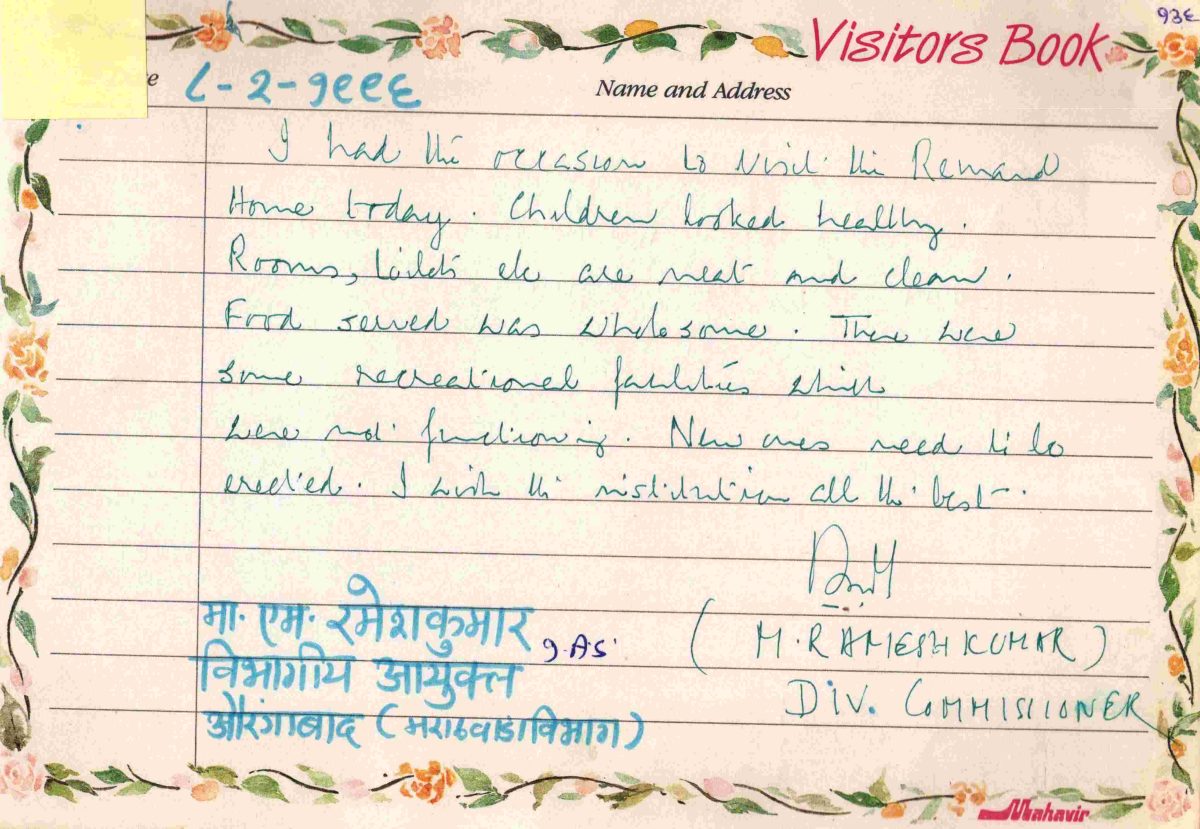 १३६
Visitors Book
e ८-२-१९९६ Name and Address
I had the occasion to visit the Remand
Home today. Children looked healthy.
Rooms, toilets etc are neat and clean.
Food served was wholesome. There were
some recreational facilities which
were not functioning. New ones need to be
erected. I wish the institution all the best.
मा. एम. रमेशकुमार I.A.S.
(M. RAMESH KUMAR)
विभागीय आयुक्त
DIV. COMMISSIONER
औरंगाबाद (मराठवाडा विभाग)
Mahavir